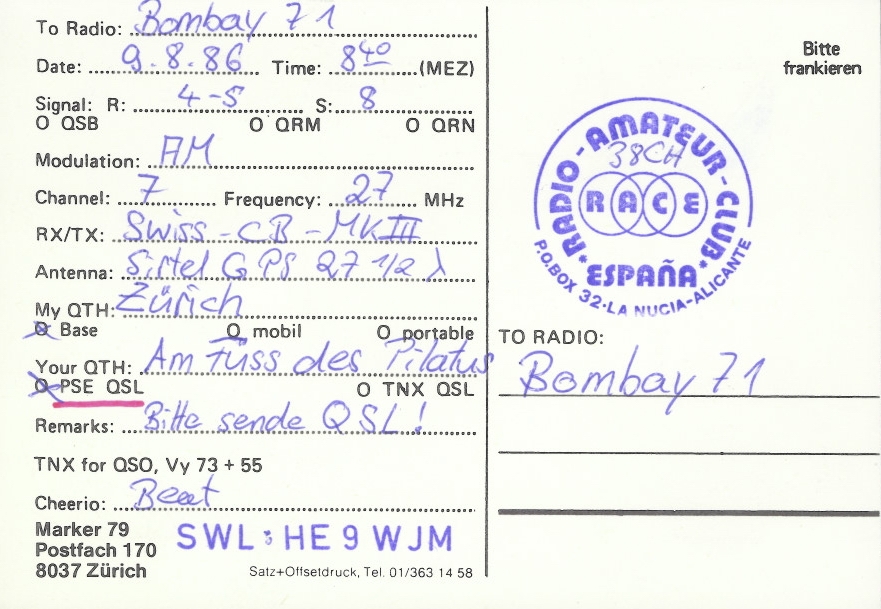 To Radio: Bombay 71
Date: 9.8.86 Time: 8 40 (MEZ)
Signal: R: 4-5 S: 8
O QSB O QRM O QRN
Modulation: AM
Channel: 7 Frequency: 27 MHz
RX/TX: Swiss-CB-MKIII
Antenna: Sirtel GPS 27 1/2 λ
My QTH: Zürich
O Base O mobil O portable
Your QTH: Am Fuss des Pilatus
O PSE QSL O TNX QSL
Remarks: Bitte sende QSL!
TNX for QSO, Vy 73 + 55
Cheerio: Beat
Marker 79
Postfach 170
8037 Zürich
SWL: HE 9 WJM
Satz+Offsetdruck, Tel. 01/363 14 58
Bitte
frankieren
*RADIO-AMATEUR-CLUB*
38CH
RACE
ESPAÑA
P.O.BOX 32-LA NUCIA-ALICANTE
TO RADIO:
Bombay 71